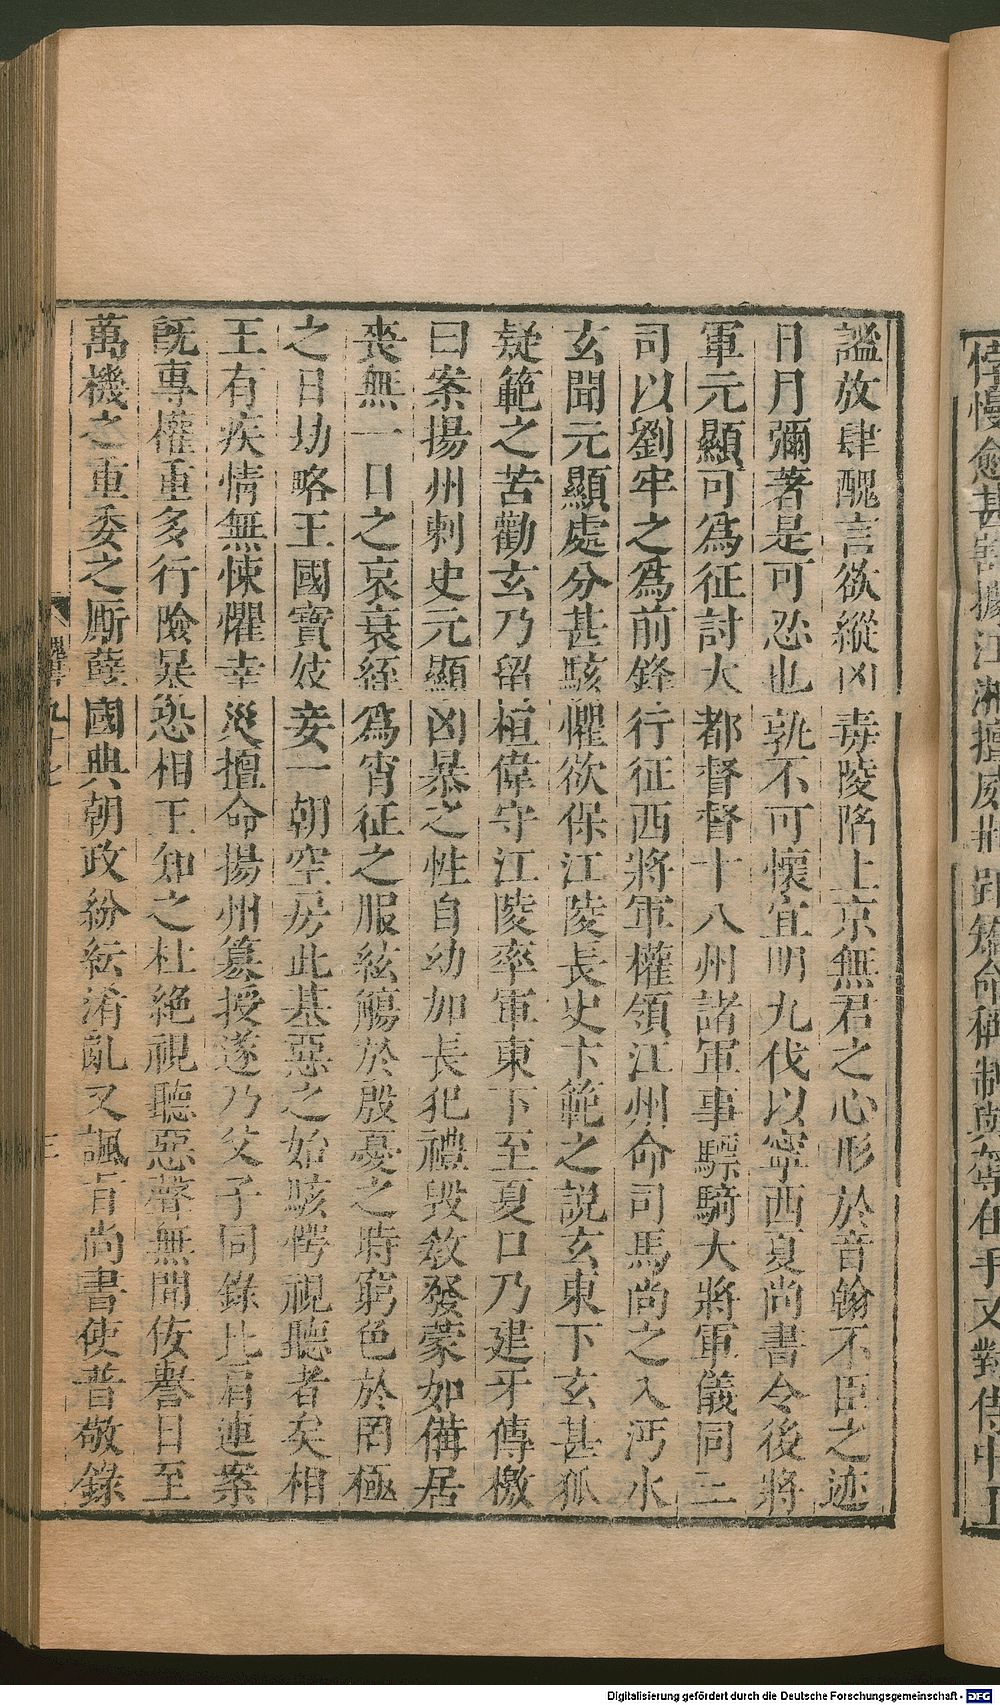 謐放肆醜言欲縱凶毒陵陷上京無君之心形於音翰不臣之迹
日月彌著是可忍也孰不可懷宜明九伐以寧西夏尚書令後將
軍元顯可爲征討大都督督十八州諸軍事驃騎大將軍儀同三
司以劉牢之爲前鋒行征西將軍權領江州命司馬尚之入沔水
玄聞元顯處分甚駭懼欲保江陵長史卞範之說玄東下玄甚狐
疑範之苦勸玄乃留桓偉守江陵率軍東下至夏口乃建牙傳檄
曰案揚州刺史元顯凶暴之性自幼加長犯禮毀敎發蒙如備居
喪無一日之哀衰絰爲宵征之服絃觴於殷憂之時窮色於罔極
之日劫略王國寶妓妾一朝空房此基惡之始駭愕視聽者矣相
王有疾情無悚懼幸災擅命揚州篡授遂乃父子同錄比肩連案
旣專權重多行險暴恐相王知之杜絕視聽惡聲無聞佞譽日至
萬機之重委之厮孽國典朝政紛紜淆亂又諷旨尚書使普敬錄
魏書九十七
三
Digitalisierung gefördert durch die Deutsche Forschungsgemeinschaft - DFG